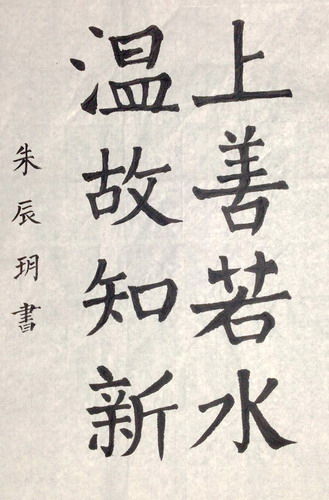 上善若水
温故知新
朱辰玥書